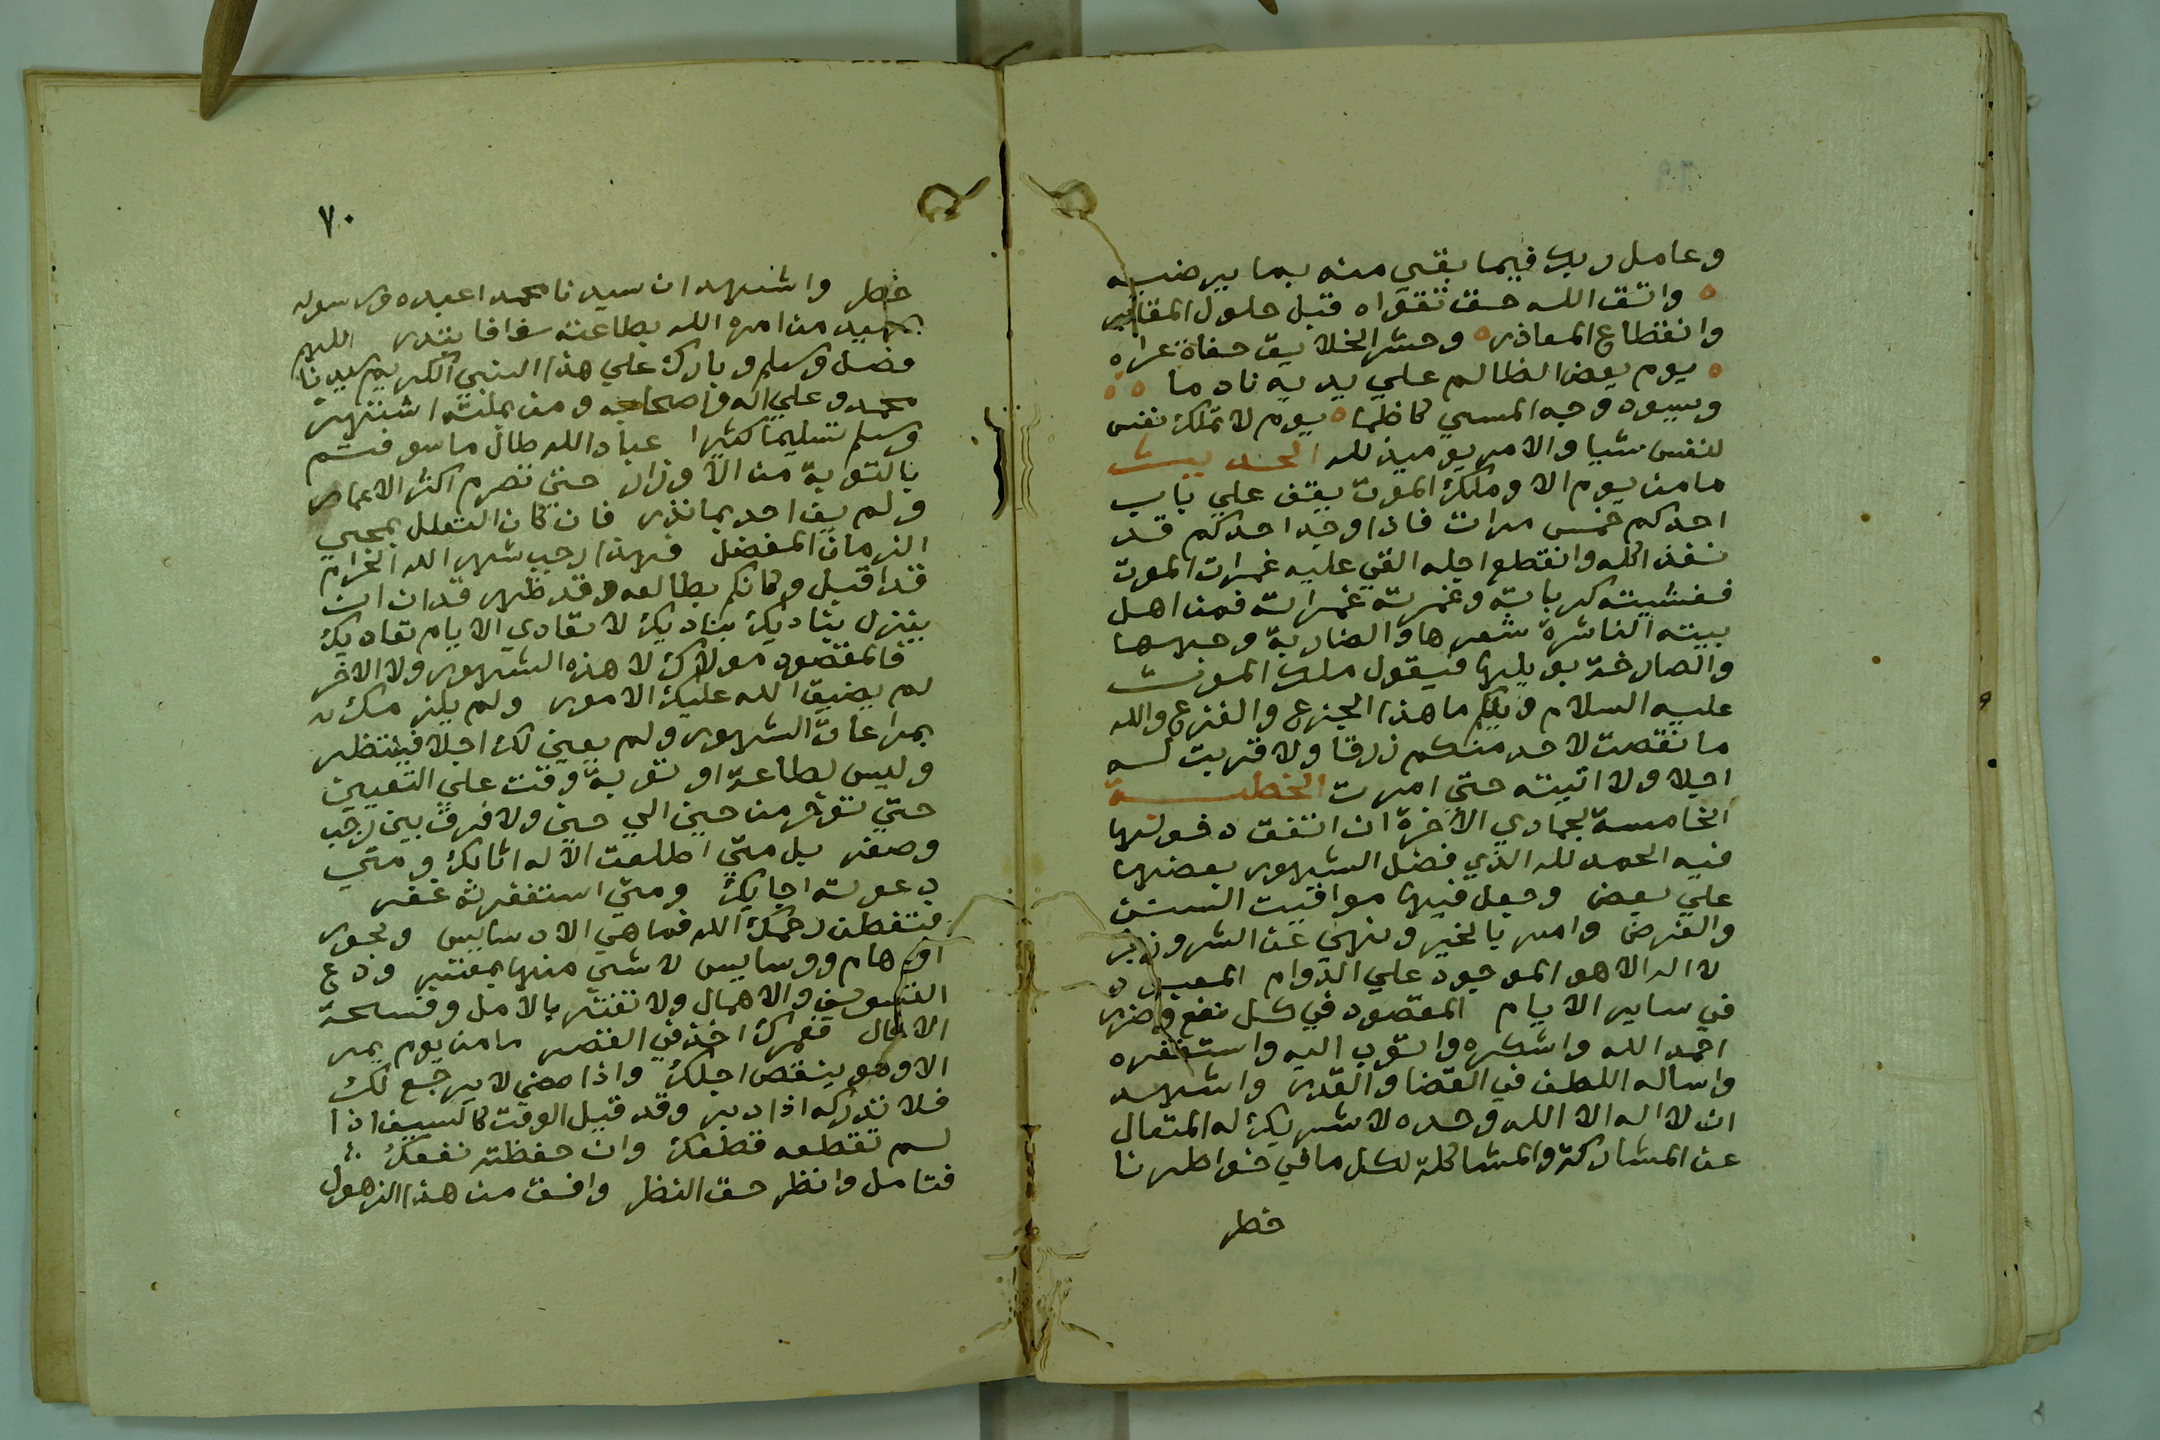 وعامل ربك فيما بقي منه بما يرضيه
ه واتق الله حق تقواه قبل حلول المقابر
وانقطاع المعاذر ه وحشر الخلايق حفاة عراه
ه يوم يعض الظالم علي يديه نادما ه ه
ويسود وجه المسي كاظما ه يوم لا تملك نفس
لنفس شيا والامر يوميذ لله الحديث
ما من يوم الا وملك الموت يقف علي باب
احدكم خمس مرات فاذا وجد احدكم قد
نفذ اكله وانقطع اجله القي عليه غمرات الموت
فغشيته كرباته وغمرته غمراته فمن اهل
بيته الناشرة شعرها والضاربة وجهها
والصارخة بويلها فيقول ملك الموت
عليه السلام ويلكم ما هذا الجزع والفزع والله
ما نقصت لاحد منكم زرقا ولا قربت له
اجلا ولا اتيته حتي امرت الخطبة
الخامسة لجمادي الاخرة ان اتفق دخولها
فيه الحمد لله الذي فضل الشهور بعضها
علي بعض وجعل فيها مواقيت السنن
والفرض وامر بالخير ونهي عن الشر وزجر
لا اله الا هو الموجود علي الدوام المعبود
في ساير الايام المقصود في كل نفع وضر
احمد الله واشكره واتوب اليه واستغفره
واساله اللطف في القضا والقدر واشهد
ان لا اله الا الله وحده لا شريك له المتعال
عن المشاركة والمشاكلة لكل ما في خواطرنا
خطر
٧٠
خطر واشهد ان سيدنا محمدا عبده ورسوله
من امره الله بطاعته اللهم
فضل وسلم وبارك علي هذا النبي الكريم سيدنا
محمد وعلي اله واصحابه ومن بملته اشتهر
وسلم تسليما كثيرا عباد الله طال ما سوفتم
بالتوبة من الاوزار حتي تصرم اكثر الاعمار
ولم يف احد بما نذر فان كان التعلل بمجي
الزمان المفضل فهذا رجب شهر الله الحرام
قد اقبل وكانكم بطالعه وقد ظهر قد ان ان
ينزل بناديك يناديك لا تعادي الايام تعاديك
فالمقصود مولاك لا هذه الشهور ولا الاخر
لم يضيق الله عليك الامور ولم يلزمك
بمراعات الشهور ولم يعين لك اجلا فينتظر
وليس لطاعة او توبة وقت علي التعيين
حتي تؤخر من حين الي حين ولا فرق بين رجب
وصفر بل متي اطلعت الاله اثابك ومتي
دعوته اجابك ومتي استغفرته غفر
فتفطن رحمك الله فما هي الا دسايس وبحور
اوهام ووسايس لا شي منها بمعتبر ودع
التسويف والاهمال ولا تغتر بالامل وفسحة
الاجال فعمرك اخذ في القصر ما من يوم يمر
الا وهو ينقص اجلك واذا مضي لا يرجع لك
فلا تدركه اذا دبر وقد قيل الوقت كالسيف اذا
لم تقطعه قطعك وان حفظته نفعك
فتامل وانظر حق النظر وافق من هذا الذهول